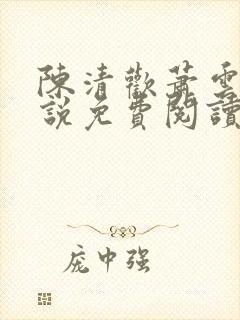 陳清歡蕭雲
說免費閱讀
庞中强